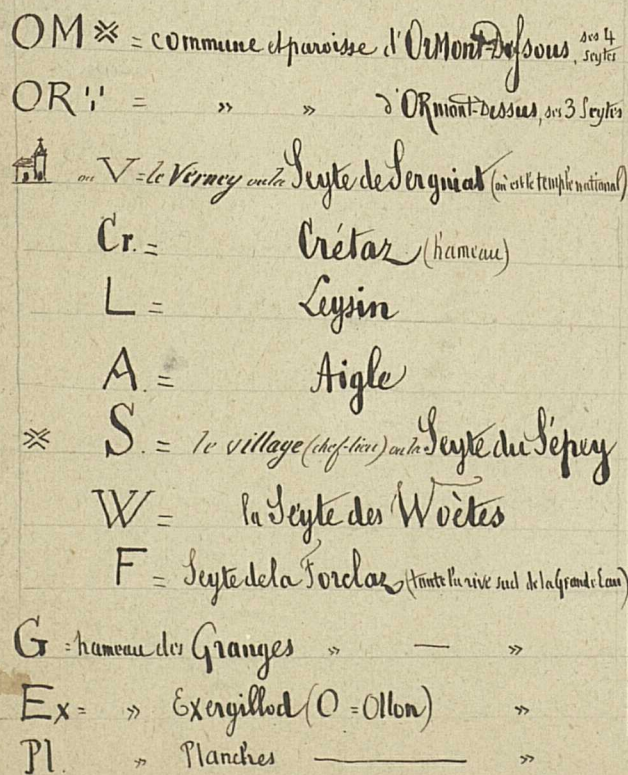 OM※ = commune et paroisse d'ORMont-Dessous, ses 4 seytes
OR ∵ = » » d'ORmont-Dessus, ses 3 Seytes
ou V = le Verney ou la Seyte de Sergniat (où est le temple national)
Cr. = Crétaz (hameau)
L = Leysin
A. = Aigle
※ S. = le village (chef-lieu) ou la Seyte du Sépey
W = la Seyte des Woètes
F = Seyte de la Forclaz (toute la rive sud de la Grande Eau)
G = hameau des Granges » — »
Ex = » Exergillod (O = Ollon) »
Pl. » Planches — »